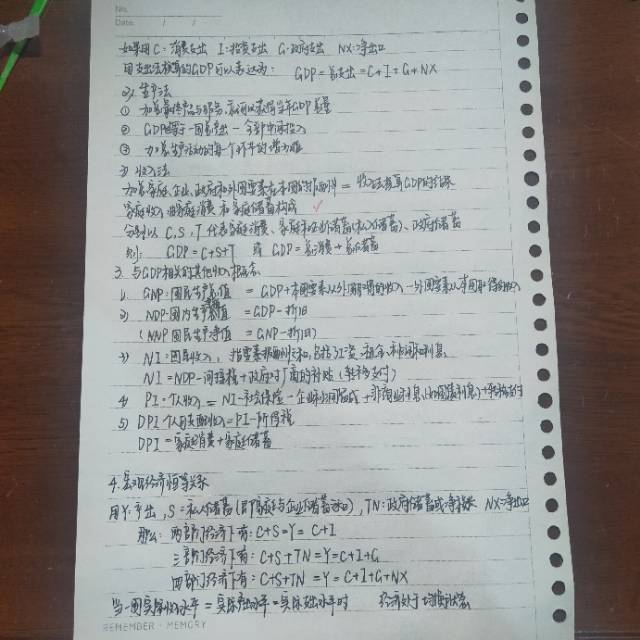 No.
Date.
如果用C:消费支出 I:投资支出 G:政府支出 NX:净出口
用支出法核算的GDP可以表达为: GDP=总支出=C+I+G+NX
2).生产法
① 加总最终产品与服务
② GDP等于一国总产出-全部中间投入
③ 加总生产活动的每个环节的增加值
3) 收入法
加总家庭、企业、政府和外国要素在本国的 = 收入法核算GDP的结果
家庭收入由家庭消费和家庭储蓄构成
分别以C,S,T代表家庭消费、家庭和企业储蓄(私人储蓄)、政府储蓄
则: GDP=C+S+T 或 GDP=总消费+总储蓄
3. 与GDP相关的其他收入概念
1) GNP:国民生产总值 = GDP+本国要素从外国取得的收入-外国要素从本国取得的收入
2) NDP:国内生产净值 = GDP-折旧
(NNP国民生产净值 = GNP-折旧)
3) NI:国民收入, 指要素报酬之和,包括工资、租金、利润和利息
NI=NDP-间接税+政府对厂商的补贴(转移支付)
4) PI:个人收入=NI-社会保险-企业
5) DPI 个人可支配收入=PI-所得税
DPI=家庭消费+家庭储蓄
4.宏观经济恒等关系
用Y:产出, S:私人储蓄(即家庭与企业储蓄), TN:政府储蓄或净税收 NX:净出口
那么: 两部门经济下有: C+S=Y=C+I
三部门经济下有: C+S+TN=Y=C+I+G
四部门经济下有: C+S+TN=Y=C+I+G+NX
当一国实际收入水平=实际产出水平=实际支出水平时 经济处于均衡状态
REMEMBER · MEMORY